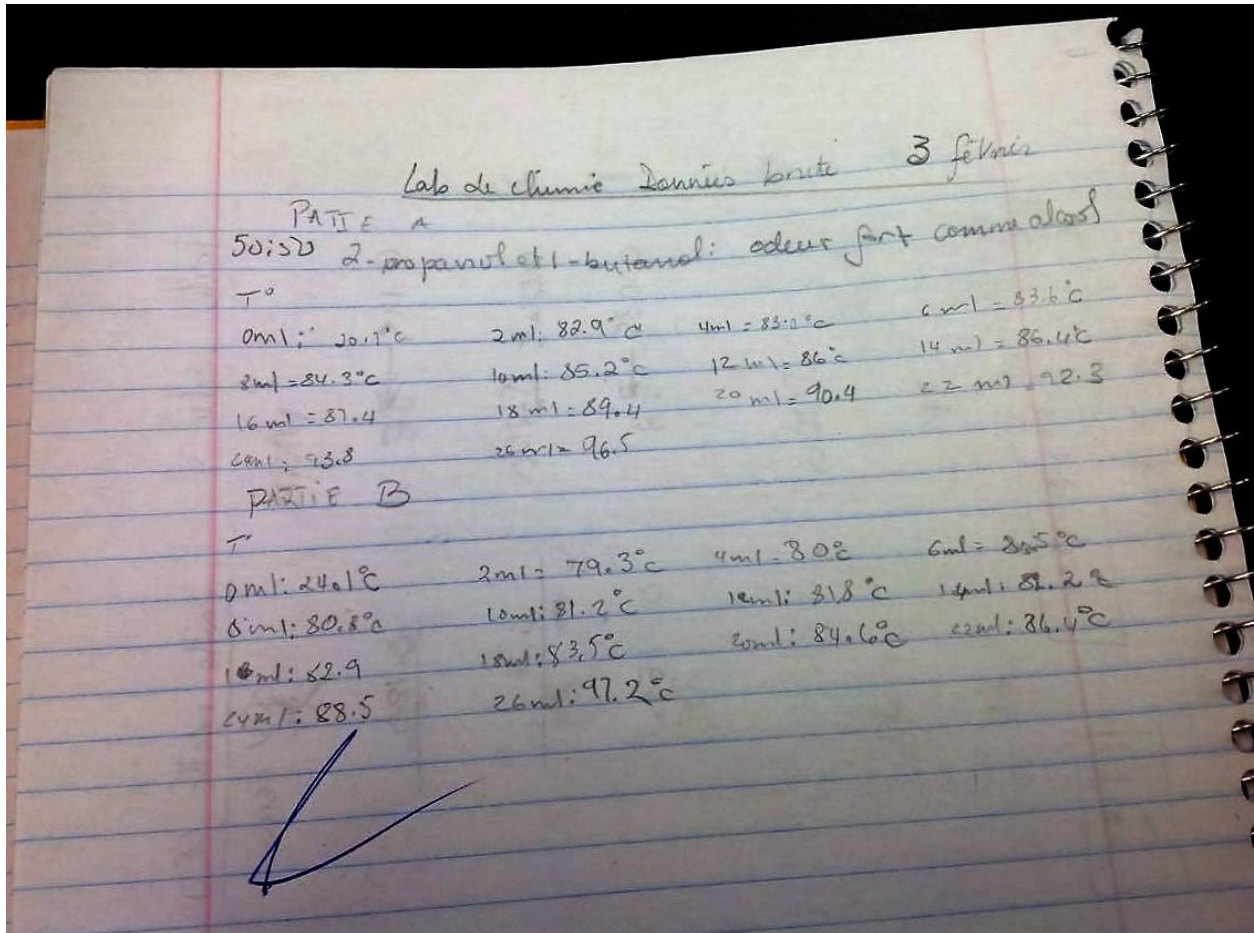 Lab de chimie Données brute 3 février
PATIE A
50:50 2-propanol et 1-butanol: odeur fort comme alcool
T°
0ml: 20.1°C 2ml: 82.9°C 4ml = 83.1°C 6ml = 83.6°C
8ml = 84.3°C 10ml: 85.2°C 12ml = 86°C 14ml = 86.4°C
16ml = 87.4 18ml = 89.4 20ml = 90.4 22ml 92.3
24ml: 93.8 26ml = 96.5
PARTIE B
T°
0ml: 24.1°C 2ml: 79.3°C 4ml = 80°C 6ml = 80.5°C
8ml: 80.8°C 10ml: 81.2°C 12ml: 81.8°C 14ml: 82.2°C
16ml: 82.9 18ml: 83.5°C 20ml: 84.6°C 22ml: 86.4°C
24ml: 88.5 26ml: 97.2°C